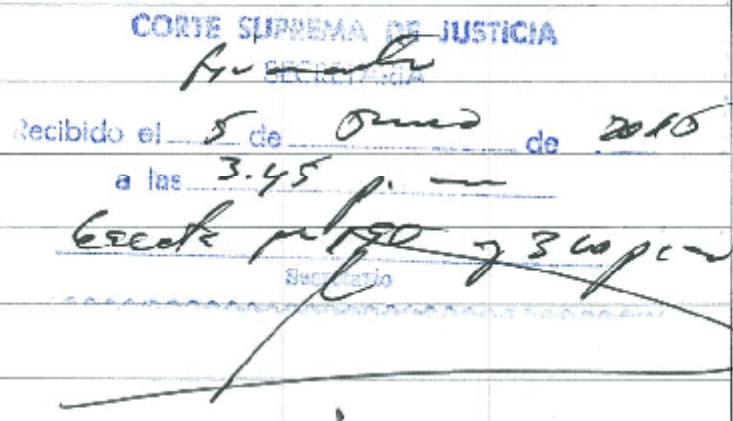 CORTE SUPREMA DE JUSTICIA
SECRETARIA
Recibido el 5 de de 2015
a las 3.45 p.
y 3 copias
Secretario